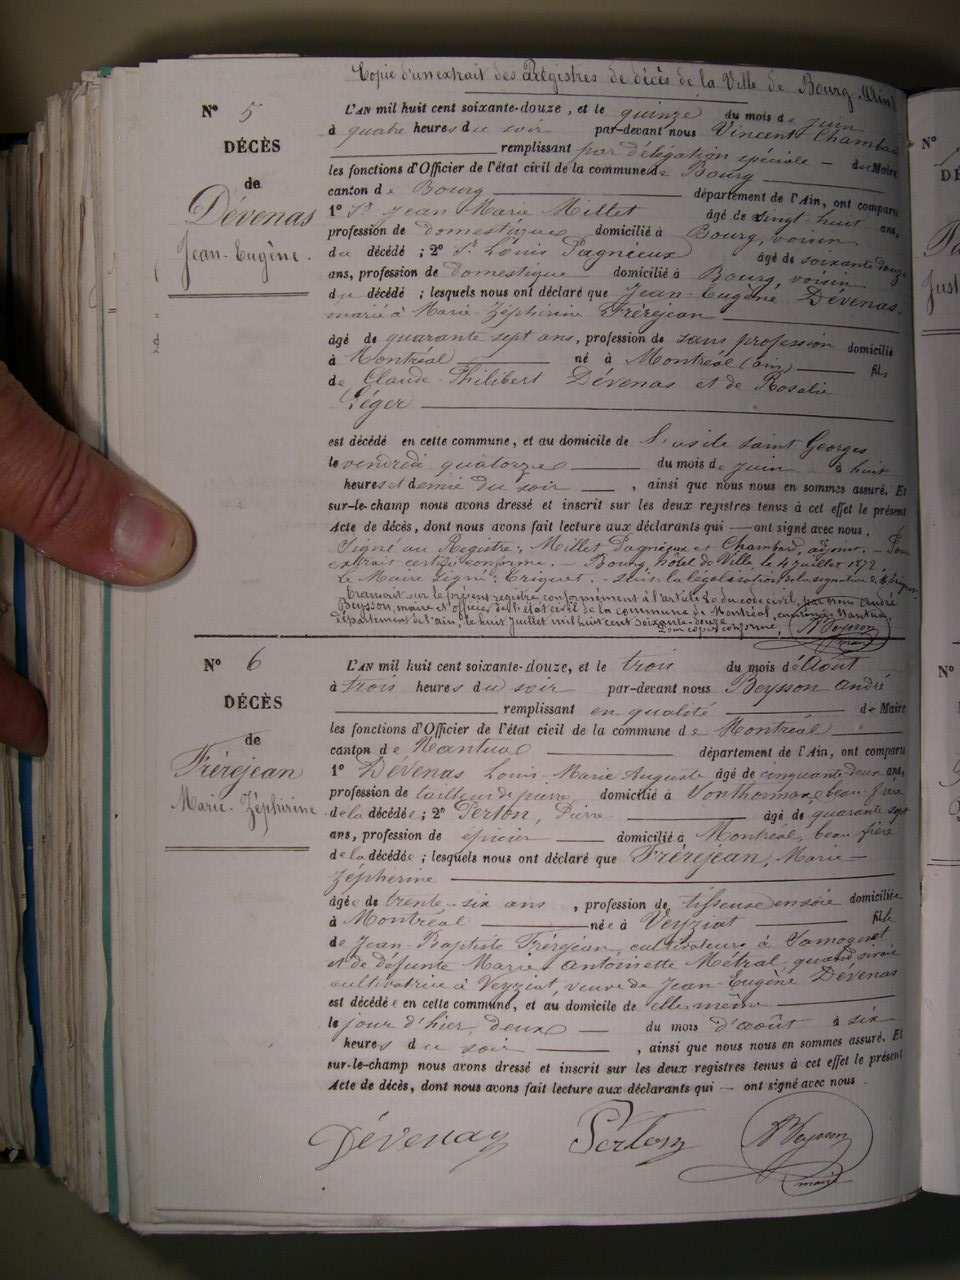 Copie d'un extrait des Régistres de décès de la Ville de Bourg (Ain)
N° 5
DÉCÈS
de
Dévenas
Jean-Eugène.
L'AN mil huit cent soixante-douze, et le quinze du mois de juin
à quatre heures du soir par-devant nous Vincent Chambard
remplissant par délégation spéciale — de Maire
les fonctions d'Officier de l'état civil de la commune de Bourg
canton de Bourg département de l'Ain, ont comparu
1° Sr Jean Marie Millet âgé de vingt-huit ans,
profession de domestique domicilié à Bourg, voisin
du décédé ; 2° Sr Louis Pagnieux âgé de soixante douze
ans, profession de domestique domicilié à Bourg, voisin
du décédé ; lesquels nous ont déclaré que Jean-Eugène Dévenas
marié à Marie-Zéphirine Fréréjean
âgé de quarante sept ans, profession de sans profession domicilié
à Montréal né à Montréal (ain) fils
de Claude-Philibert Dévenas et de Rosalie
Léger
est décédé en cette commune, et au domicile de l'asile saint Georges
le vendredi quatorze du mois de juin à huit
heures et demie du soir , ainsi que nous nous en sommes assuré. Et
sur-le-champ nous avons dressé et inscrit sur les deux registres tenus à cet effet le présent
Acte de décès, dont nous avons fait lecture aux déclarants qui — ont signé avec nous.
Signé au Registre : Millet Pagnieux et Chambard, adjoint. — Pour
extrait certifié conforme. — Bourg, hôtel de Ville, le 4 juillet 1872,
Le Maire signé : — suit la légalisation de la signature de
Transcrit sur le présent registre conformément à l'article 80 du code civil, par nous André
Beysson, maire et officier de l'état civil de la commune de Montréal, canton de Nantua,
département de l'ain, le huit juillet mil huit cent soixante-douze.
Pour copie conforme, A Beysson
maire
N° 6
DÉCÈS
de
Fréréjean
Marie-Zéphirine
L'AN mil huit cent soixante-douze, et le trois du mois d'Août
à trois heures du soir par-devant nous Beysson André
remplissant en qualité de Maire
les fonctions d'Officier de l'état civil de la commune de Montréal
canton de Nantua département de l'Ain, ont comparu
1° Dévenas Louis-Marie Auguste âgé de cinquante deux ans,
profession de tailleur de pierre domicilié à beau-frère
de la décédée ; 2° Perton, Pierre âgé de quarante sept
ans, profession de épicier domicilié à Montréal, beau frère
de la décédée ; lesquels nous ont déclaré que Fréréjean, Marie-
Zépherine
âgée de trente-six ans , profession de tisseuse en soie domiciliée
à Montréal née à Veyziat fille
de Jean-Baptiste Fréréjean, cultivateur à Samognat
et de défunte Marie Antoinette Métral quand vivait
cultivatrice à Veyziat, veuve de Jean-Eugène Dévenas
est décédée en cette commune, et au domicile de elle-même
le jour d'hier, deux — du mois d'août à six
heures du soir , ainsi que nous nous en sommes assuré. Et
sur-le-champ nous avons dressé et inscrit sur les deux registres tenus à cet effet le présent
Acte de décès, dont nous avons fait lecture aux déclarants qui — ont signé avec nous.
Dévenas Perton A Beysson
maire
N°
DÉ
Just
N°